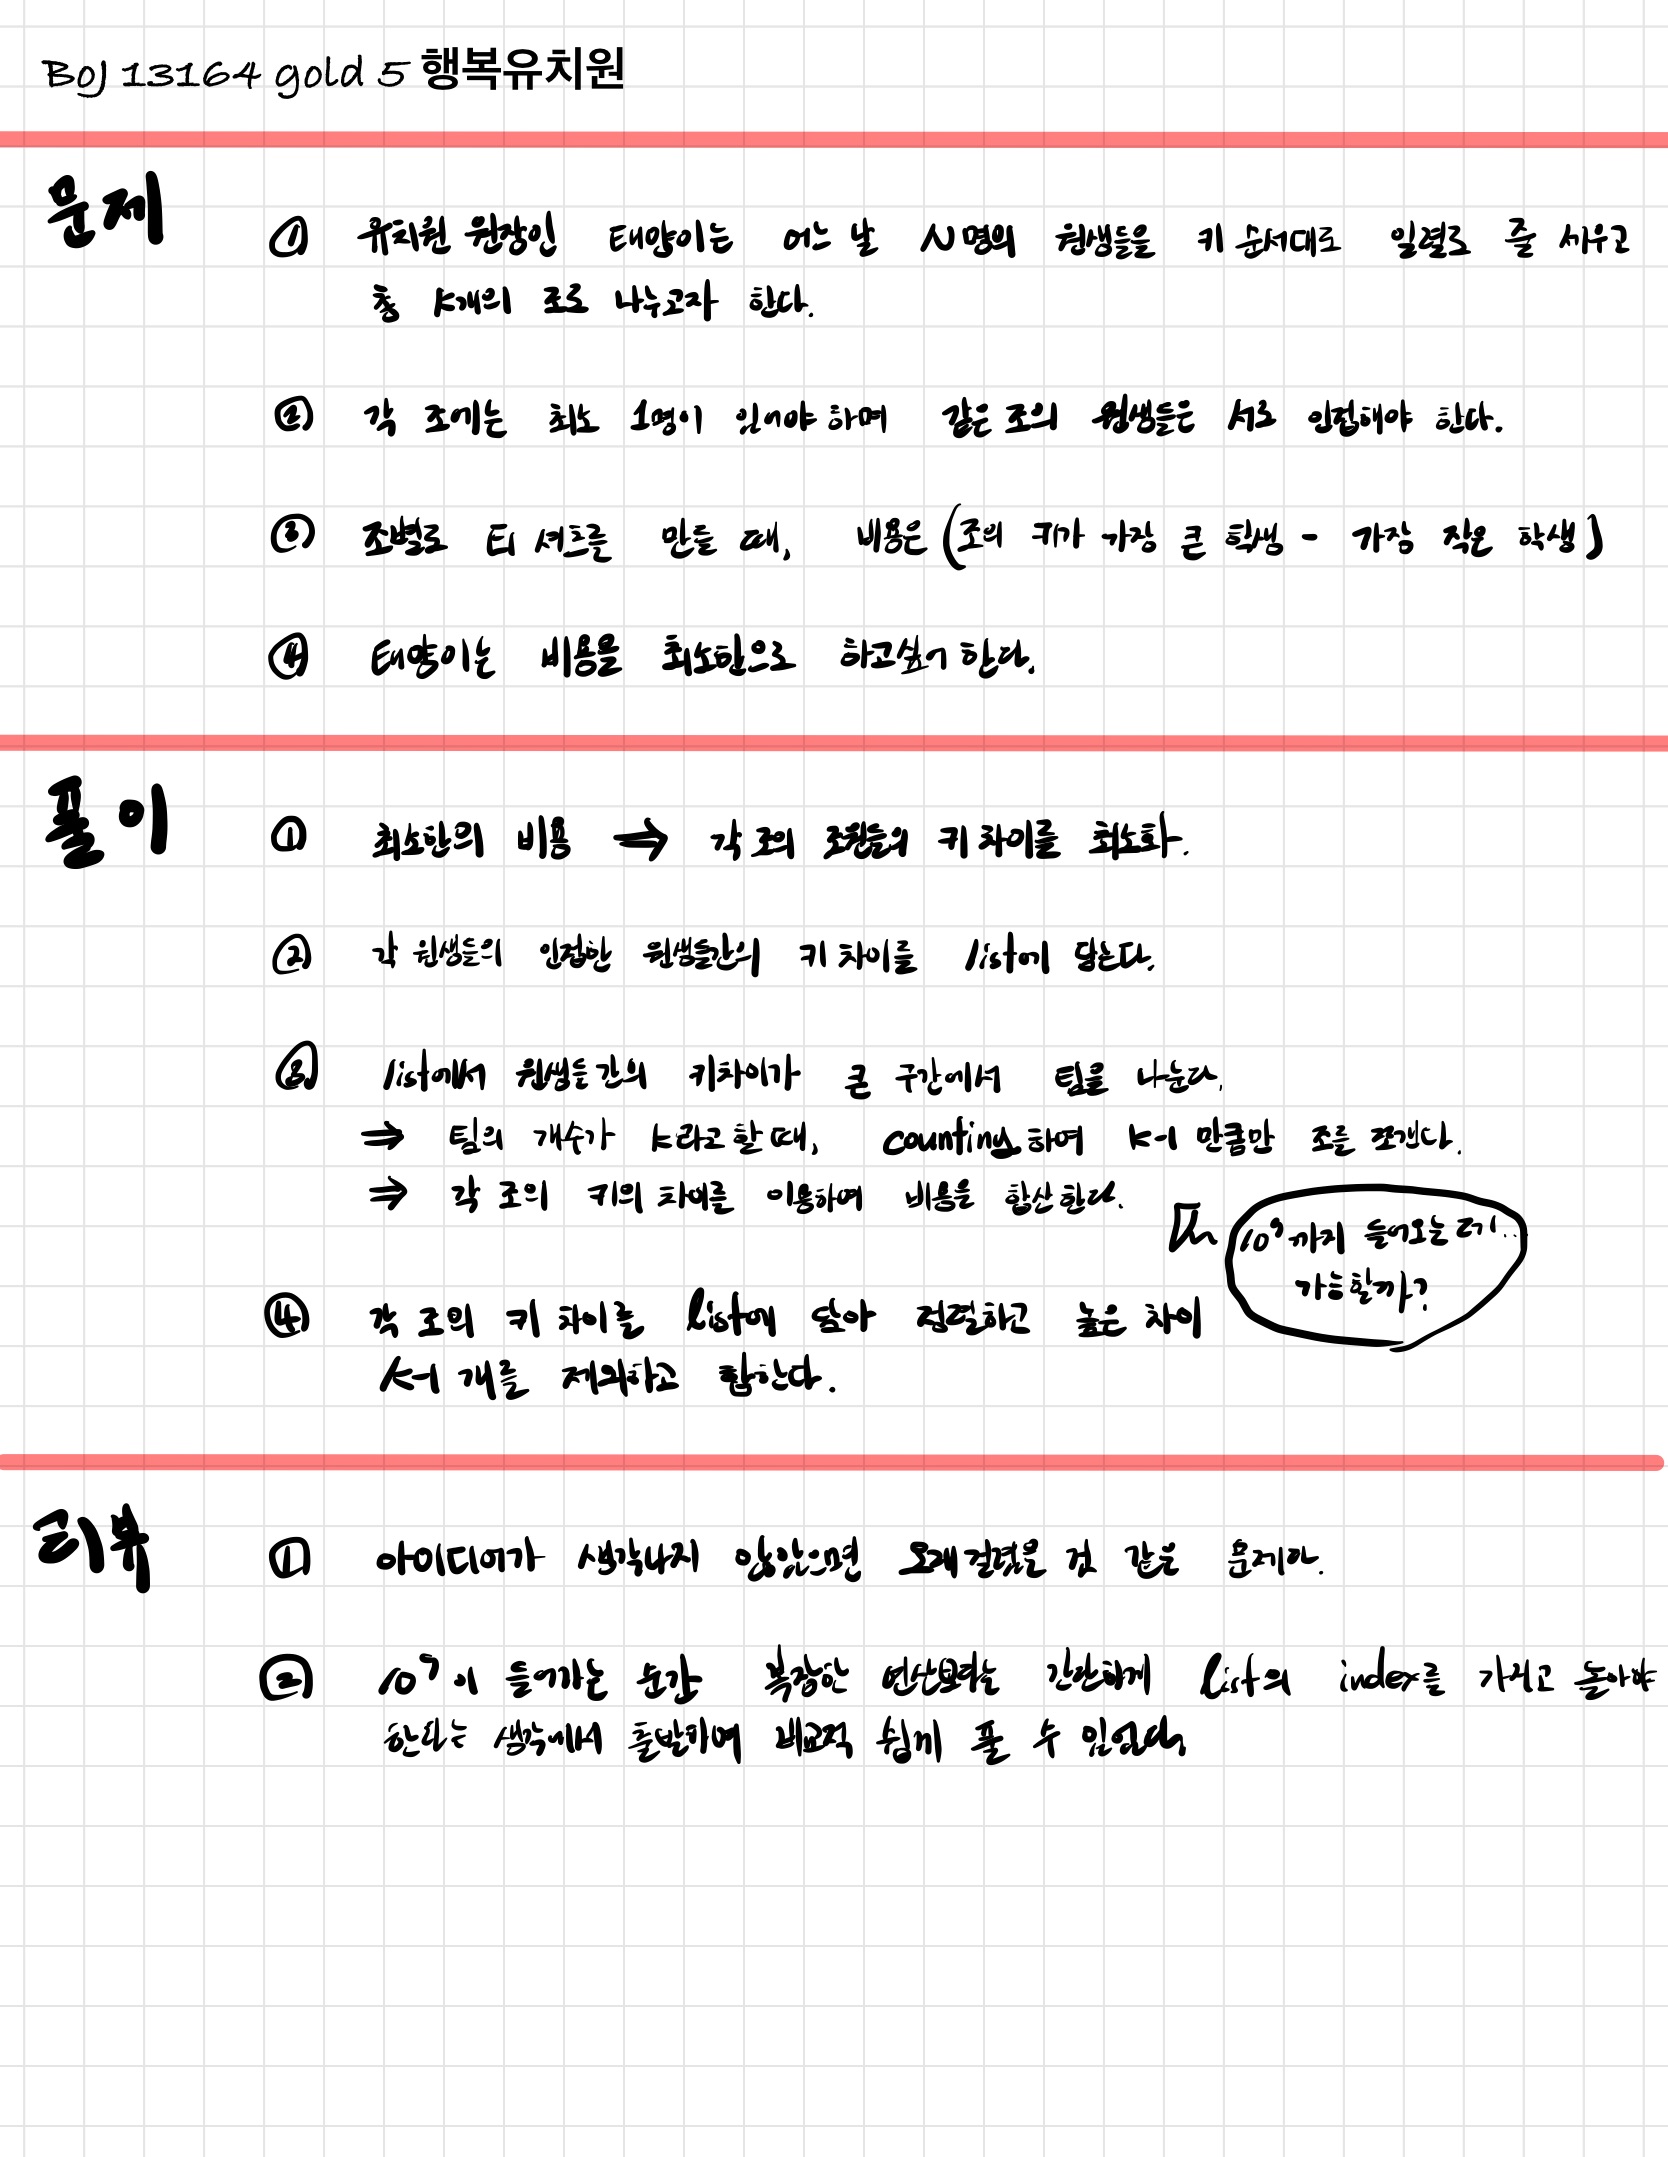 BOJ 13164 gold 5 행복유치원
문제
① 유치원 원장인 태양이는 어느 날 N명의 원생들을 키 순서대로 일렬로 줄 세우고
총 K개의 조로 나누고자 한다.
② 각 조에는 최소 1명이 있어야 하며 같은 조의 원생들은 서로 인접해야 한다.
③ 조별로 티셔츠를 만들 때, 비용은 (조의 키가 가장 큰 학생 - 가장 작은 학생)
④ 태양이는 비용을 최소한으로 하고싶어 한다.
풀이
① 최소한의 비용 ➔ 각 조의 조원들의 키 차이를 최소화.
② 각 원생들의 인접한 원생들간의 키 차이를 list에 담는다.
③ list에서 원생들간의 키차이가 큰 구간에서 팀을 나눈다.
⇒ 팀의 개수가 K라고 할 때, counting하여 K-1 만큼만 조를 쪼갠다.
⇒ 각 조의 키의 차이를 이용하여 비용을 합산한다.
10⁹까지 들어오는데...
가능할까?
④ 각 조의 키 차이를 list에 담아 정렬하고 높은 차이
K-1 개를 제외하고 합한다.
리뷰
① 아이디어가 생각나지 않았으면 오래걸렸을 것 같은 문제아.
② 10⁹이 들어가는 순간 복잡한 연산보다는 간단하게 list의 index를 가지고 놀아야
한다는 생각에서 출발하여 비교적 쉽게 풀 수 있었다.